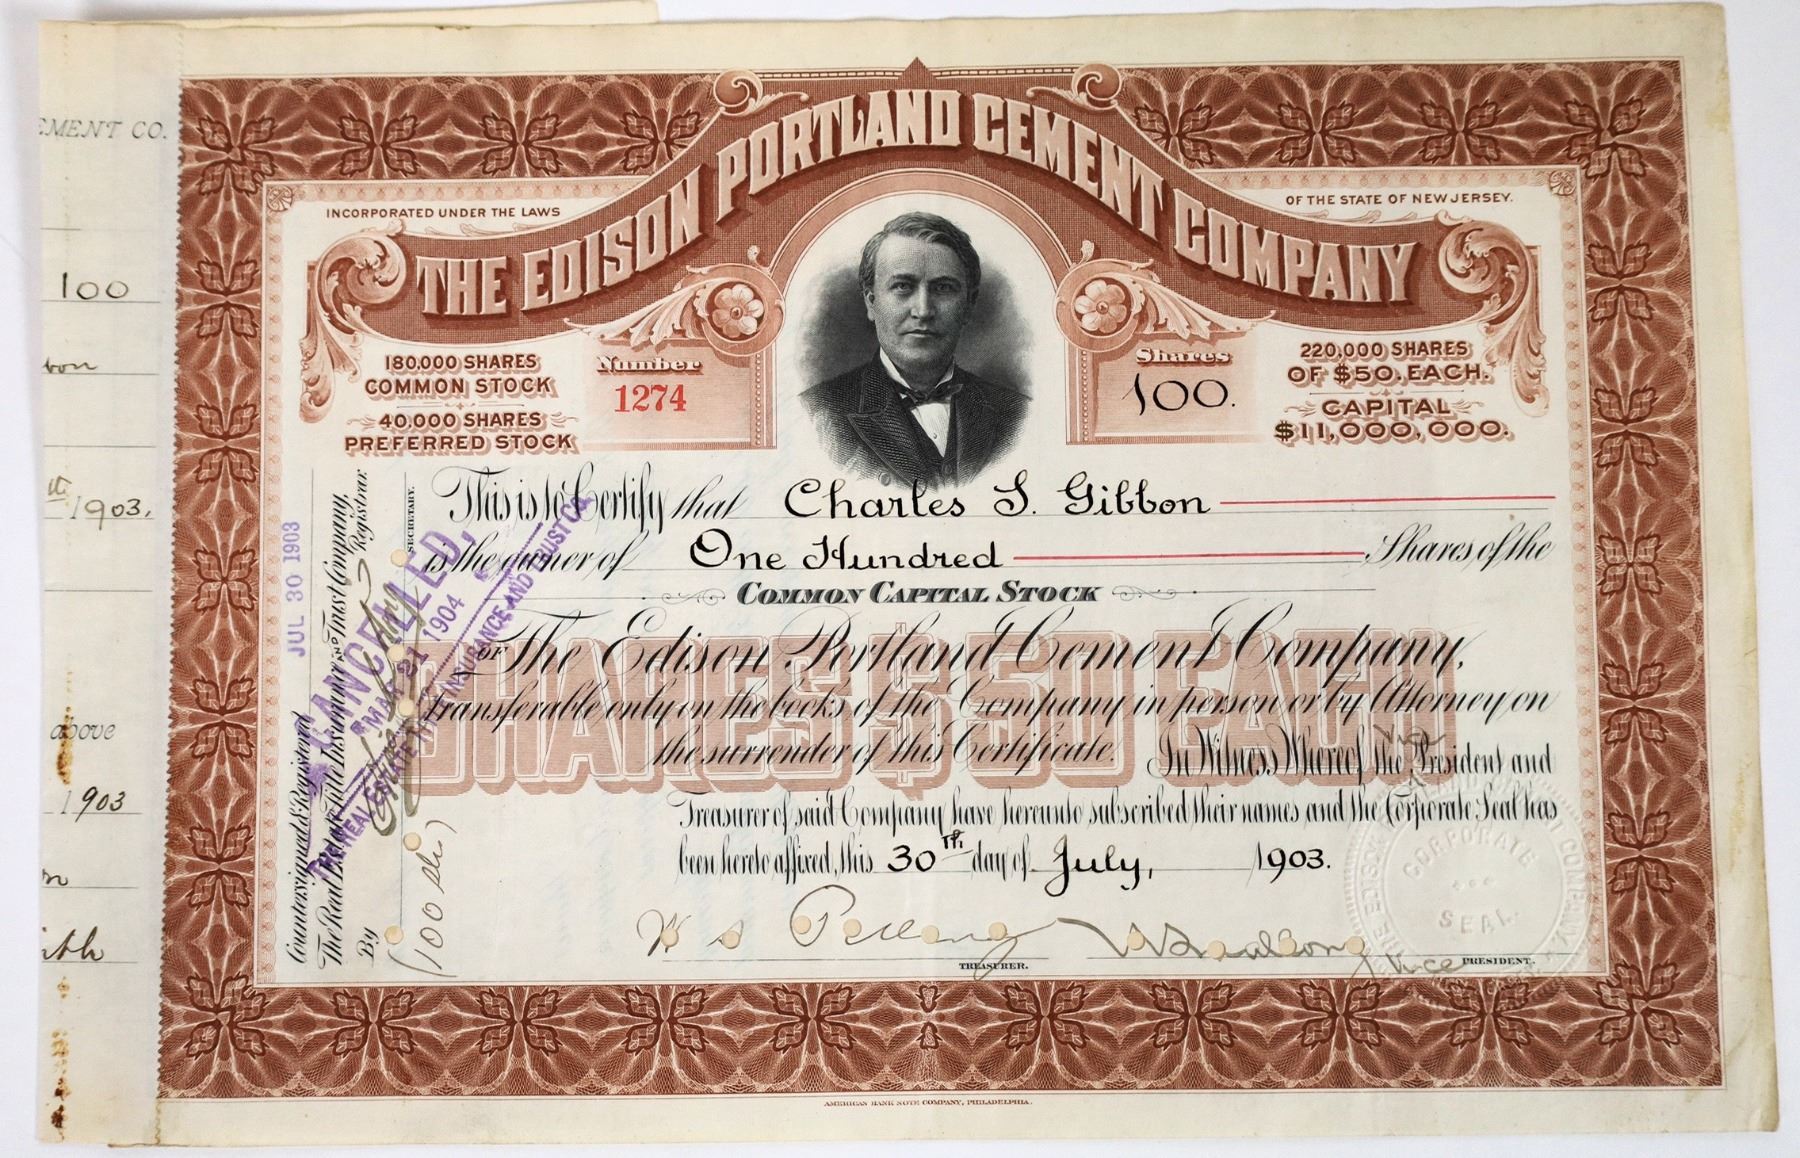 EMENT CO.
100
bon
th 1903.
above
1903
INCORPORATED UNDER THE LAWS
OF THE STATE OF NEW JERSEY.
THE EDISON PORTLAND CEMENT COMPANY
180,000 SHARES
COMMON STOCK
40,000 SHARES
PREFERRED STOCK
Number
1274
Shares
100.
220,000 SHARES
OF $50. EACH.
CAPITAL
$11,000,000.
This is to Certify that Charles S. Gibbon
is the owner of One Hundred Shares of the
COMMON CAPITAL STOCK
OF The Edison Portland Cement Company,
SHARES $50 EACH
Transferable only on the books of the Company in person or by Attorney on
the surrender of this Certificate. In Witness Whereof the Vice President and
Treasurer of said Company have hereunto subscribed their names and the Corporate Seal has
been hereto affixed, this 30th day of July, 1903.
TREASURER.
Vice PRESIDENT.
CORPORATE
SEAL
JUL 30 1903
Countersigned & Registered
The Real Estate Title Insurance and Trust Company,
Registrar.
By
SECRETARY.
CANCELLED,
MAR 21 1904
THE REAL ESTATE TITLE INSURANCE AND TRUST CO.
(100 shs)
AMERICAN BANK NOTE COMPANY, PHILADELPHIA.